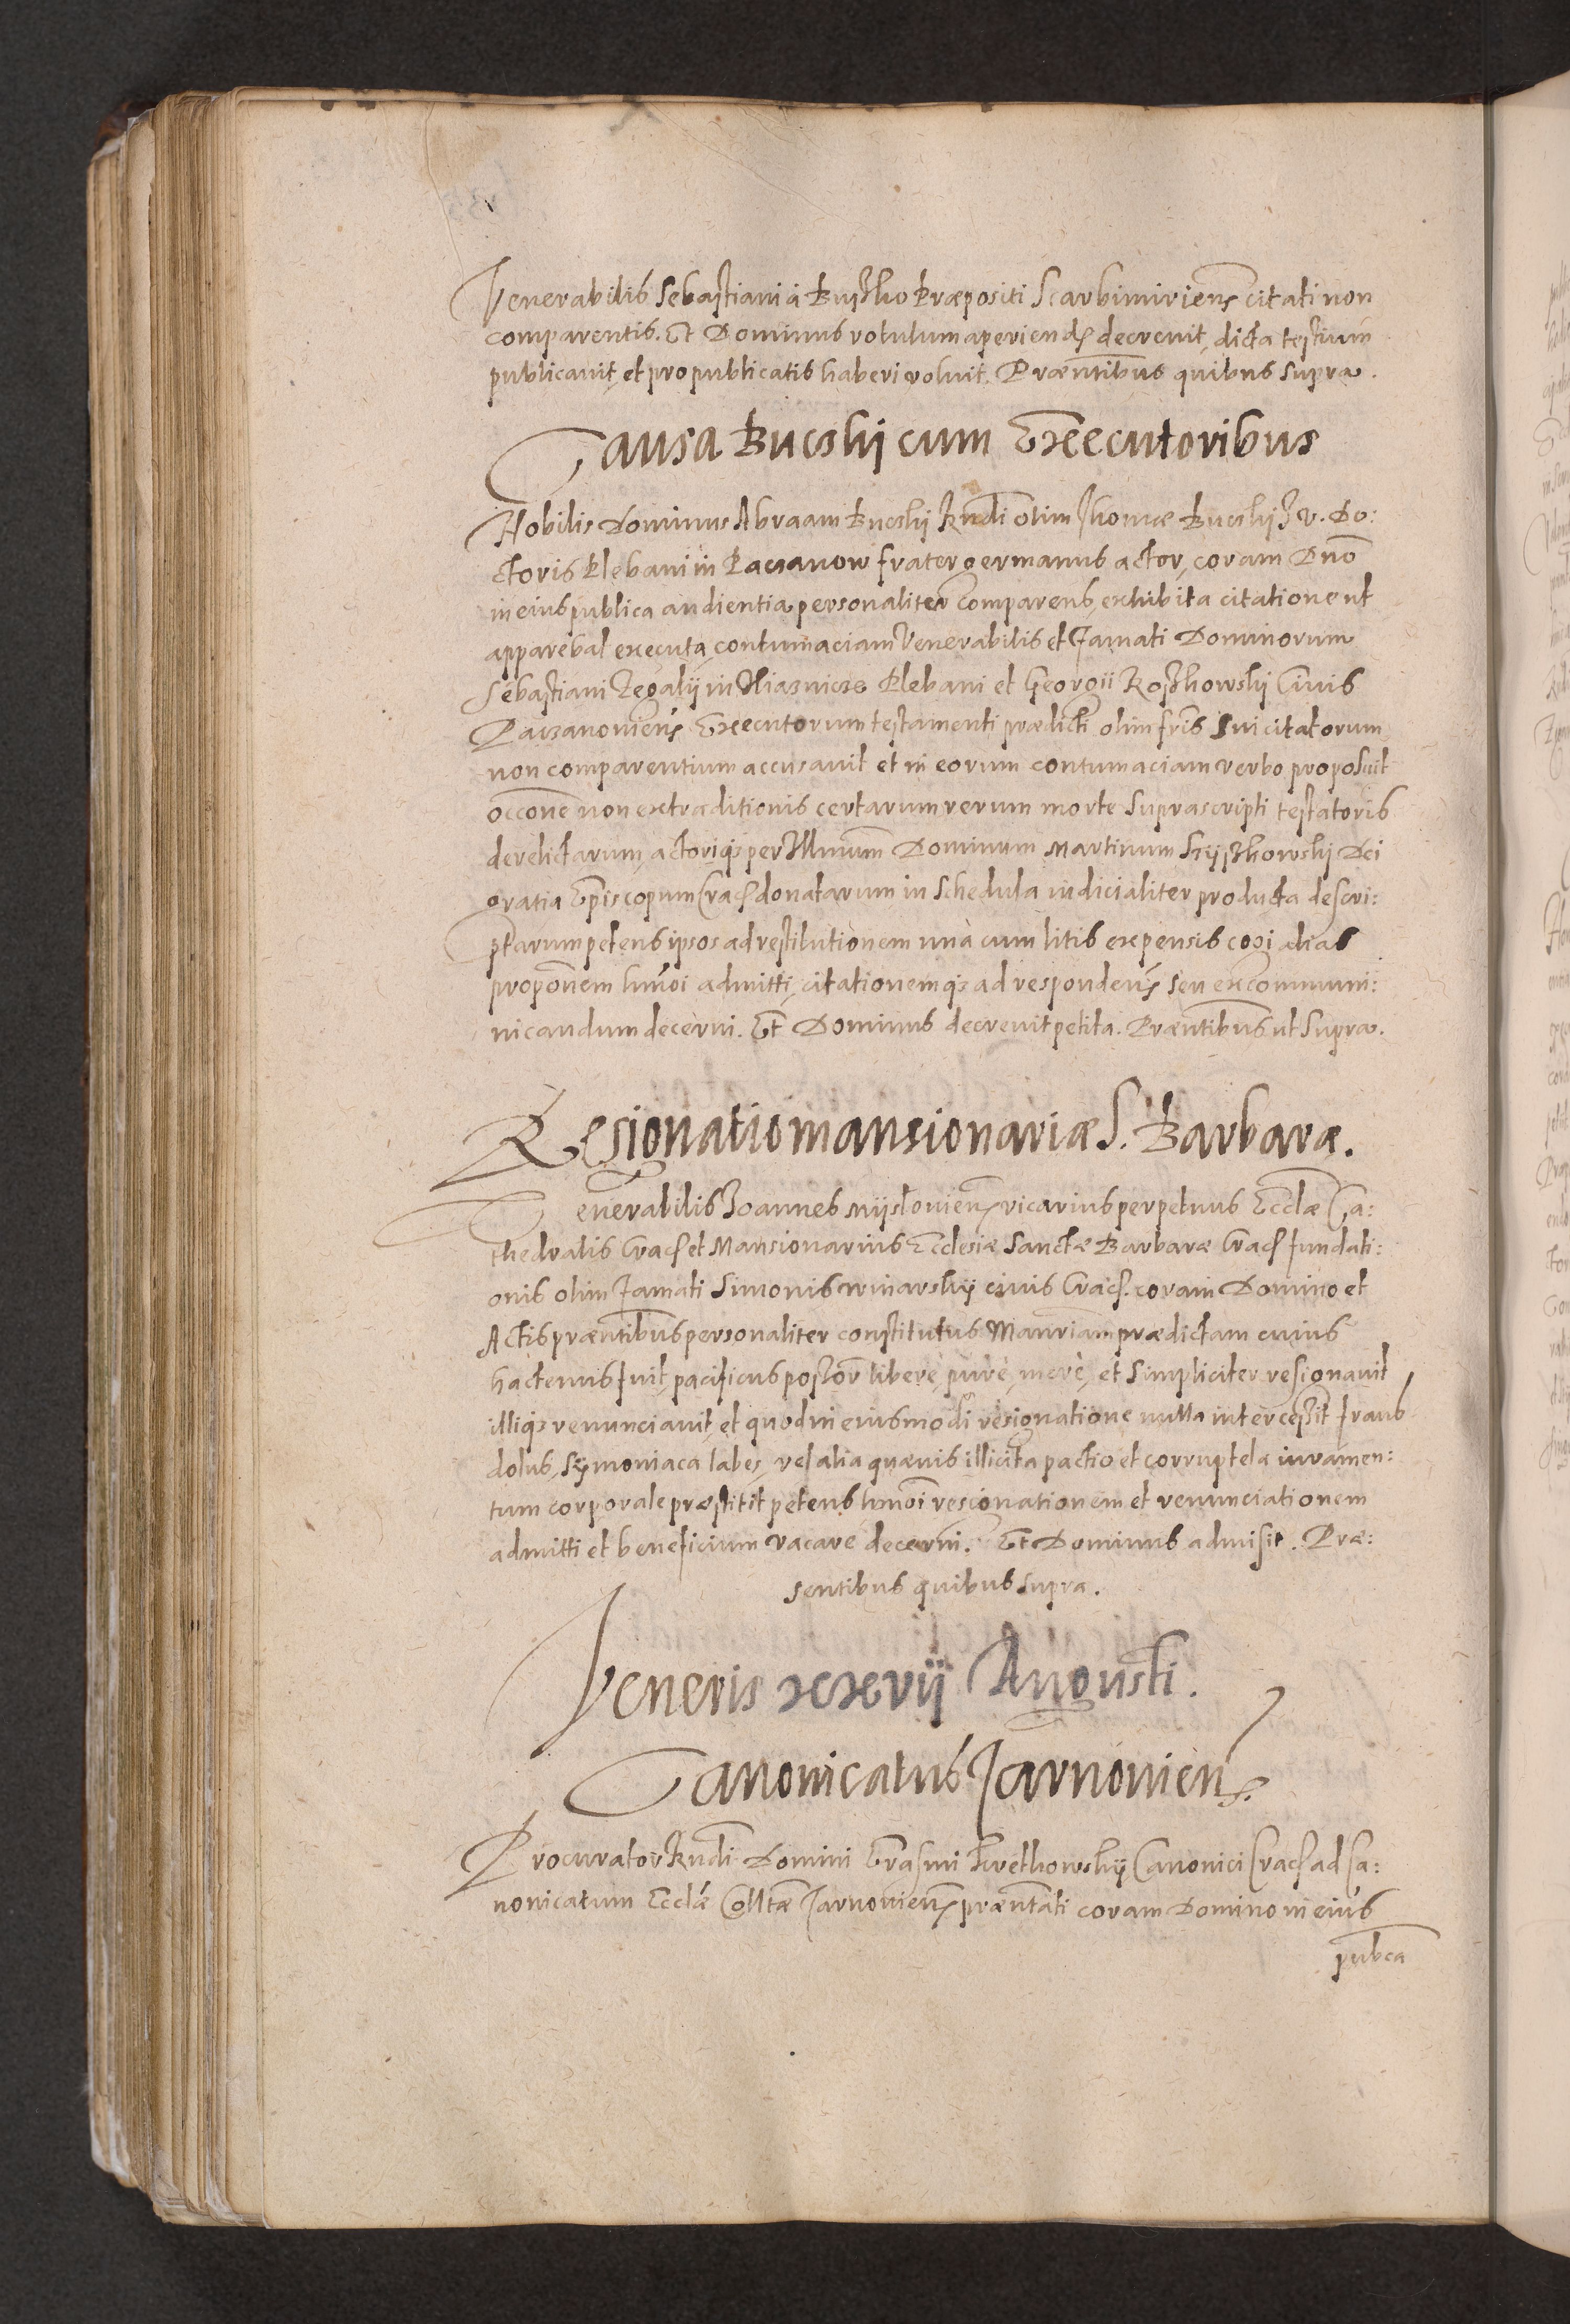 Venerabilis Sebastiani à Busko Præpositi Scarbimiriens citati non
comparentis. Et Dominus rotulum aperiend decrevit, dicta testium
publicavit, et pro publicatis haberi voluit. Præntibus quibus supra.
Causa Bucski cum Executoribus
Nobilis Dominus Abraam Bucskj Rndi olim Thomæ Bucskj J. V. Do:
ctoris Plebani in Paczanow frater germanus actor, coram Dno
in eius publica audientia personaliter comparens, exhibita citatione ut
apparebat executa, contumaciam Venerabilis et Famati Dominorum
Sebastiani Zegalij in Plebani et Georgii Koszkowskj Civis
Paczanoviens Executorum testamenti prædicti olim fris sui citatorum
non comparentium accusavit et in eorum contumaciam verbo proposuit
occone non extraditionis certarum rerum morte suprascripti testatoris
derelictarum, actoriqz per Illmum Dominum Martinum Szyszkowskj Dei
gratia Episcopum Crac donatarum in schedula iudicialiter producta descri:
ptarum petens ipsos ad restitutionem unà cum litis expensis cogi alias
proponem hmoi admitti, citationemqz ad respondens seu excommuni:
nicandum decerni. Et Dominus decrevit petita. Præntibus ut supra.
Resignatio mansionariæ S. Barbaræ.
Venerabilis Joannes Myslovien vicarius perpetuus Ecclæ Ca:
thedralis Crac et Mansionarius Ecclesiæ Sanctæ Barbaræ Crac fundati:
onis olim Famati Simonis Winarskij civis Crac. coram Domino et
Actis præntibus personaliter constitutus Manriam prædictam cuius
hactenus fuit, pacificus possor liberè, purè, merè, et simpliciter resignavit
illiqz renunciavit, et quod in eiusmodi resignatione nulla intercessit fraus
dolus, symoniaca labes, vel alia quævis illicita pactio et corruptela iuramen:
tum corporale præstitit petens hmoi resignationem et renunciationem
admitti et beneficium vacare decerni. Et Dominus admisit. Præ:
sentibus quibus supra.
Veneris xxvij Augusti.
Canonicatus Tarnovien.
Procurator Rndi Domini Erasmi Kretkowskij Canonici Crac ad Ca:
nonicatum Ecclæ Colltæ Tarnovien præntati coram Domino in eius
pubca